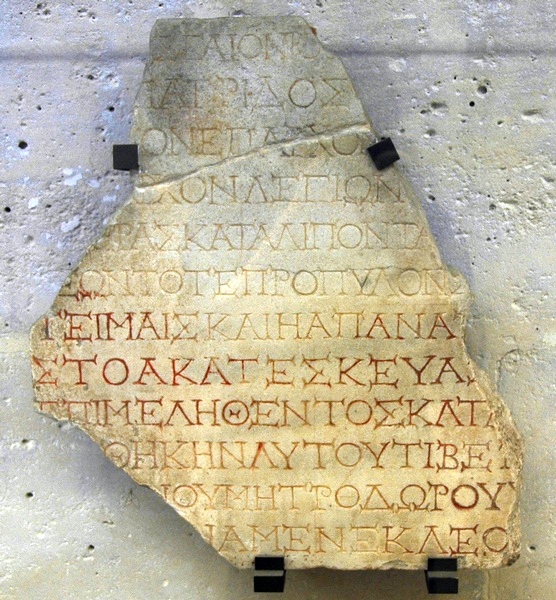 ΣΕΛΙΟΝΕ
ΠΑΤΡΙΔΟΣ
ΟΝΕΠΑΡΧΟΝ
ΑΡΧΟΝΛΕΓΙΩΝ
ΟΡΑΣΚΑΤΑΛΙΠΟΝΤΑ
ΔΩΝΤΟΤΕΠΡΟΠΥΛΟΝ
ΤΕΙΜΑΙΣΚΑΙΗΑΠΑΝΑ
ΣΤΟΑΚΑΤΕΣΚΕΥΑΣ
ΕΠΙΜΕΛΗΘΕΝΤΟΣΚΑΤΑ
ΘΗΚΗΝΑΥΤΟΥΤΙΒΕΡ
ΙΟΥΜΗΤΡΟΔΩΡΟΥ
ΑΜΕΝΣΚΛΕΟ